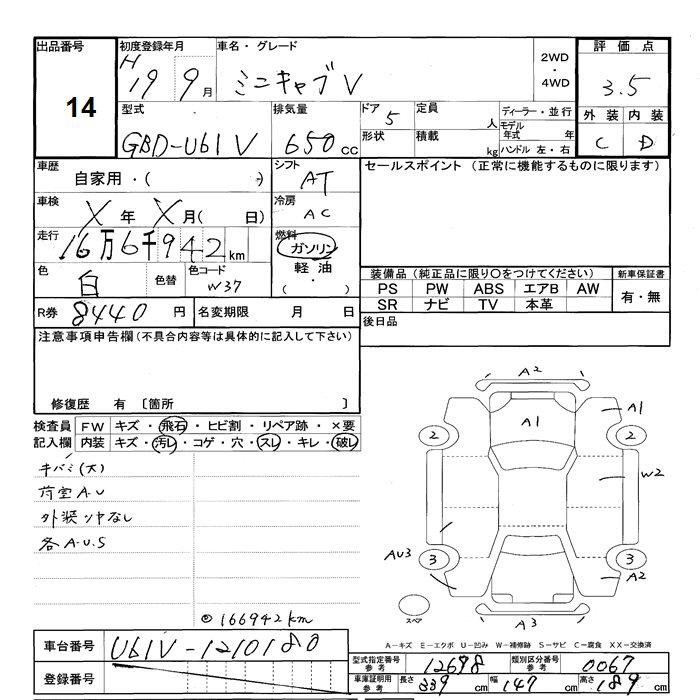 出品番号 14
初度登録年月 H19 9月
車名・グレード ミニキャブV
2WD・4WD
評価点 3.5
外装 C 内装 D
型式 GBD-U61V
排気量 650cc
ドア 5
形状
定員 人
積載 kg
ディーラー・並行
モデル年式 年
ハンドル 左・右
車歴 自家用・( )
シフト AT
セールスポイント (正常に機能するものに限ります)
車検 X年X月( 日)
冷房 AC
走行 16万6千942km
燃料 ガソリン
軽油
( ・ )
色 白 色替 色コード W37
装備品 (純正品に限り○をつけてください)
新車保証書 有・無
PS PW ABS エアB AW
SR ナビ TV 本革
R券 8440円 名変期限 月 日
後日品
注意事項申告欄(不具合内容等は具体的に記入して下さい)
修復歴 有 〔箇所 〕
検査員記入欄
FW キズ・飛石・ヒビ割・リペア跡・×要
内装 キズ・汚レ・コゲ・穴・スレ・キレ・破レ
キバミ(大)
荷室A.U
各A.U.S
◎166942km
A2
A1
A1
2 2
W2
AU3
3 3
A2
スペア
A3
A-キズ E-エクボ U-凹み W-補修跡 S-サビ C-腐食 XX-交換済
車台番号 U61V-1210180
登録番号
型式指定番号参考 12698 類別区分番号参考 0067
車庫証明用参考 長さ339cm 幅147cm 高さ189cm